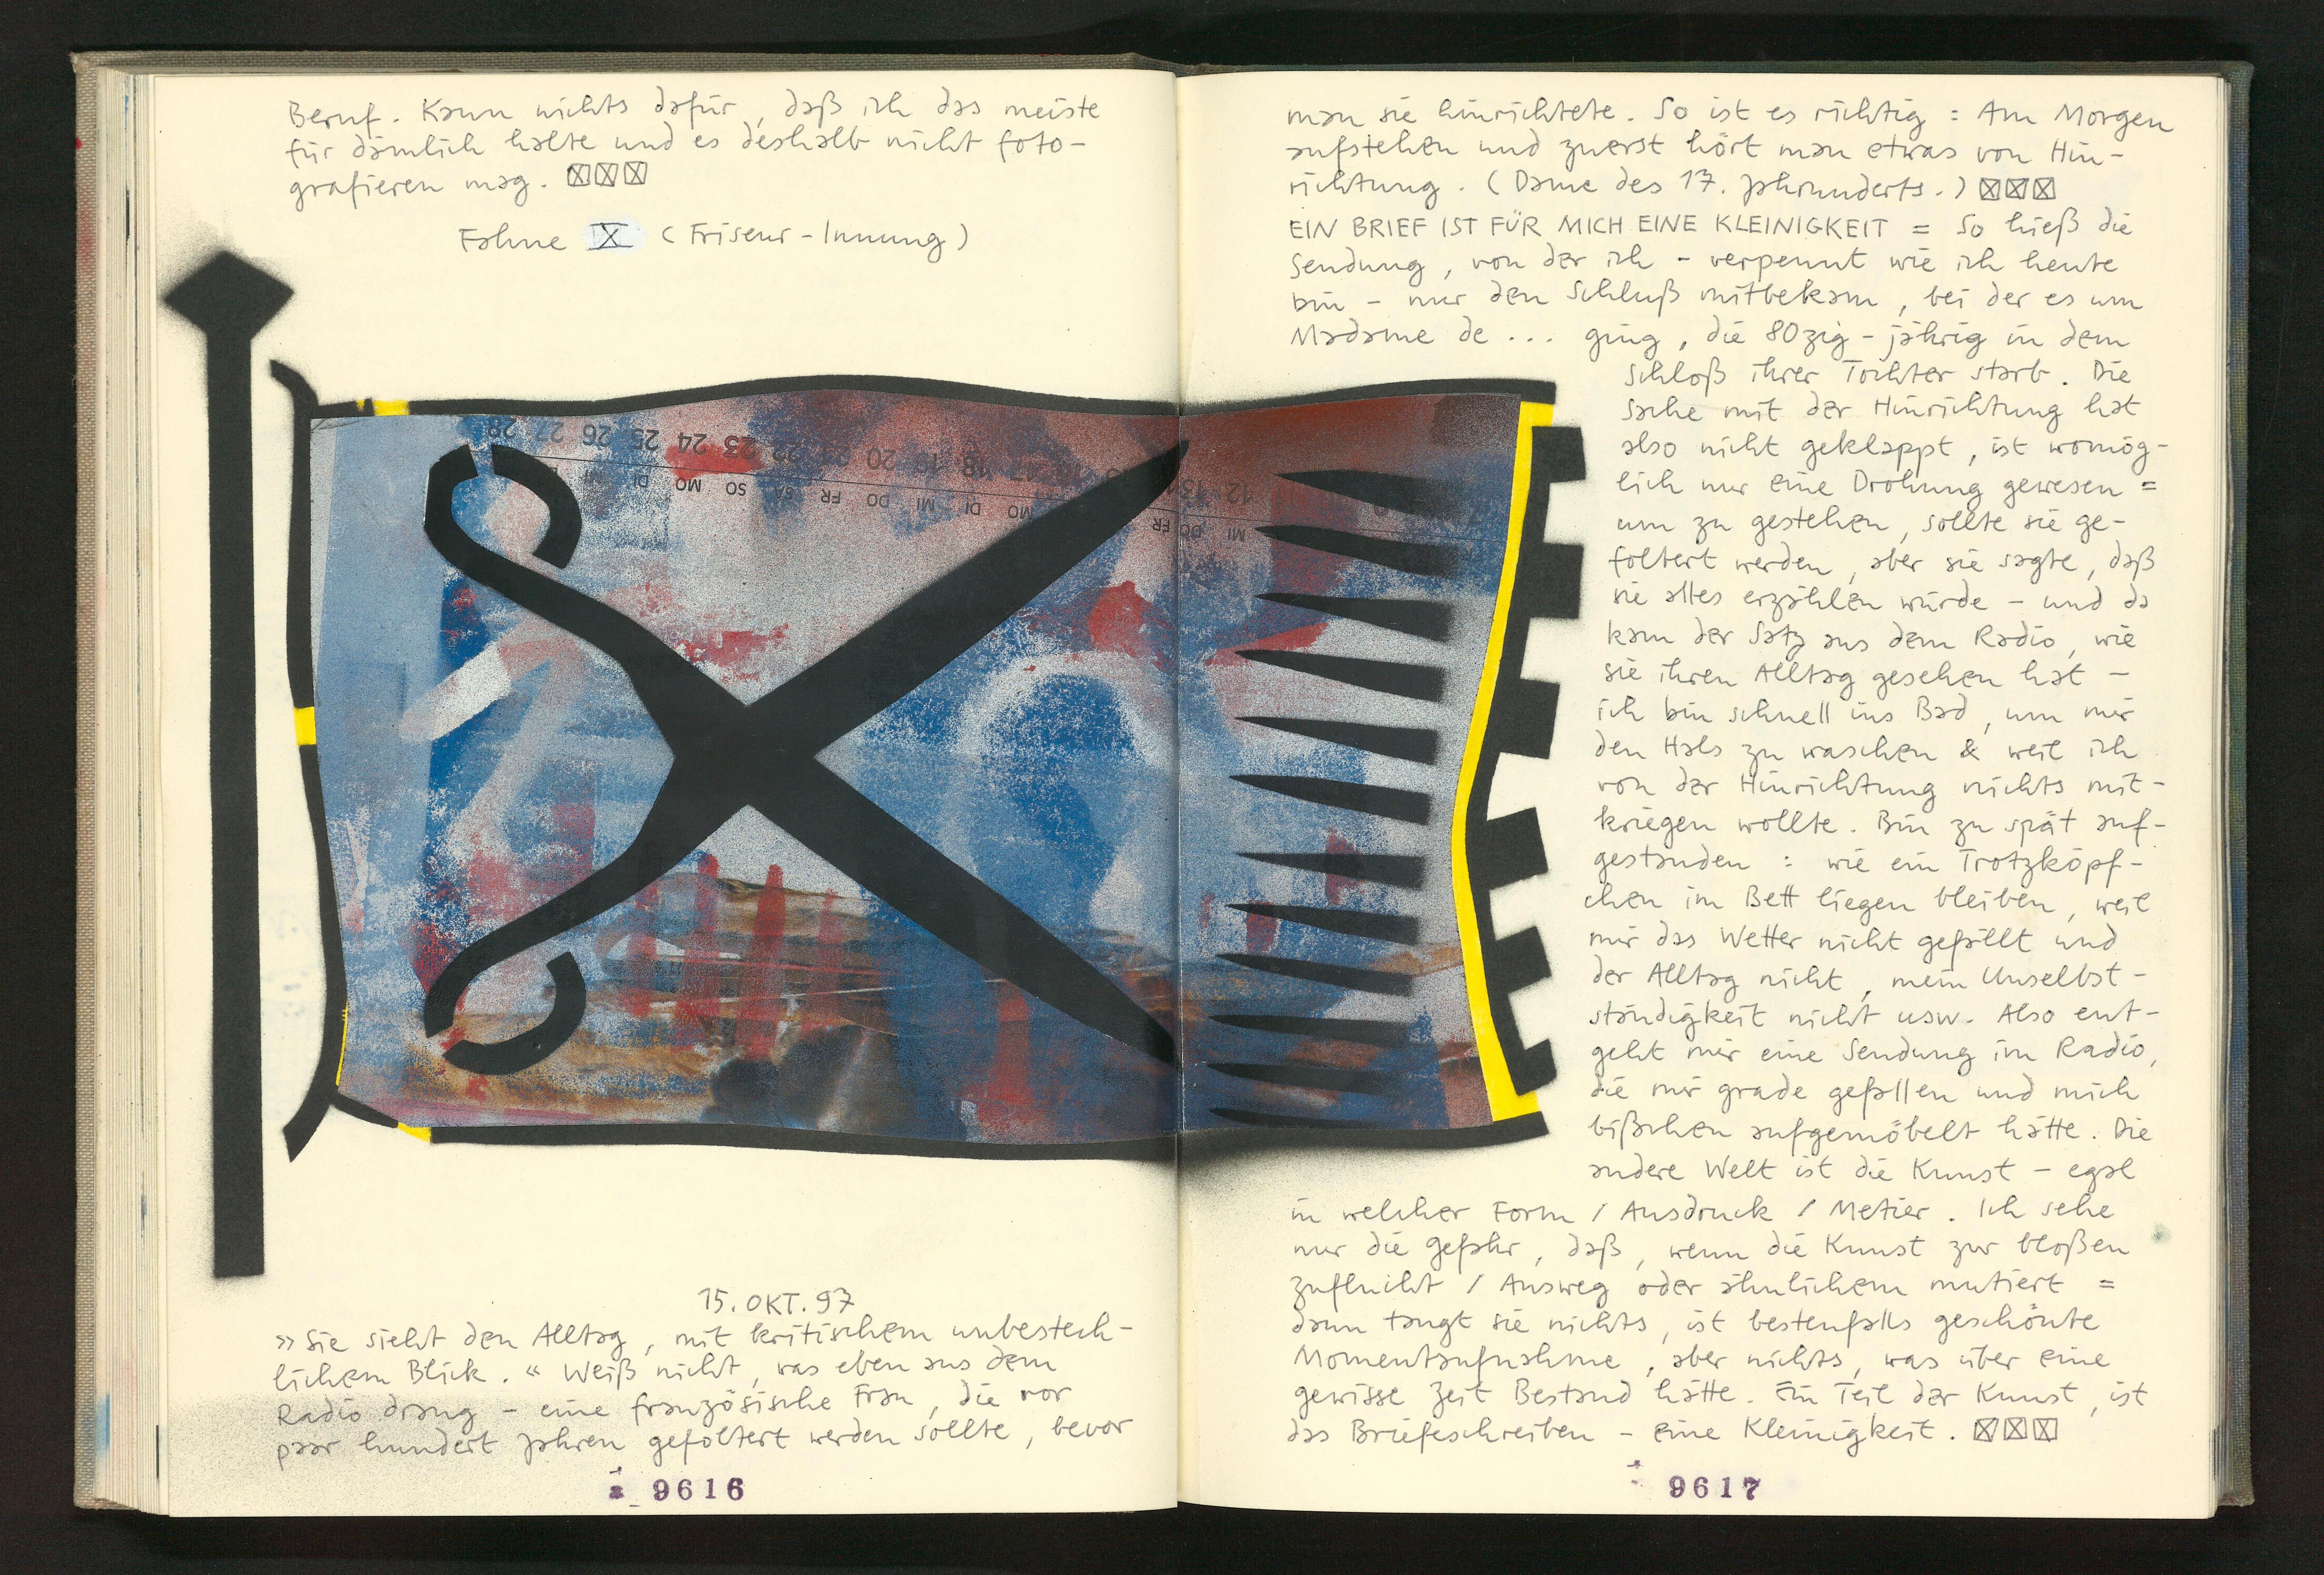 Beruf. Kann nichts dafür, daß ich das meiste
für dämlich halte und es deshalb nicht foto-
grafieren mag. ☒☒☒
Fahne X (Friseur-Innung)
28 27 26 25 24 23 22 21 20 19 18 17
DI MO SO SA FR DO MI DI MO
15. OKT. 97
»Sie sieht den Alltag, mit kritischem unbestech-
lichem Blick.« Weiß nicht, was eben aus dem
Radio drang – eine französische Frau, die vor
paar hundert Jahren gefoltert werden sollte, bevor
9616
man sie hinrichtete. So ist es richtig: Am Morgen
aufstehen und zuerst hört man etwas von Hin-
richtung. (Dame des 17. Jahrhunderts.) ☒☒☒
EIN BRIEF IST FÜR MICH EINE KLEINIGKEIT = So hieß die
Sendung, von der ich – verpennt wie ich heute
bin – nur den Schluß mitbekam, bei der es um
Madame de ... ging, die 80zig-jährig in dem
Schloß ihrer Tochter starb. Die
Sache mit der Hinrichtung hat
also nicht geklappt, ist womög-
lich nur eine Drohung gewesen =
um zu gestehen, sollte sie ge-
foltert werden, aber sie sagte, daß
sie alles erzählen würde – und da
kam der Satz aus dem Radio, wie
sie ihren Alltag gesehen hat –
ich bin schnell ins Bad, um mir
den Hals zu waschen & weil ich
von der Hinrichtung nichts mit-
kriegen wollte. Bin zu spät auf-
gestanden: wie ein Trotzköpf-
chen im Bett liegen bleiben, weil
mir das Wetter nicht gefällt und
der Alltag nicht, mein Unselbst-
ständigkeit nicht usw. Also ent-
geht mir eine Sendung im Radio,
die mir grade gefallen und mich
bißchen aufgemöbelt hätte. Die
andere Welt ist die Kunst – egal
in welcher Form / Ausdruck / Metier. Ich sehe
nur die Gefahr, daß, wenn die Kunst zur bloßen
Zuflucht / Ausweg oder ähnlichem mutiert =
dann taugt sie nichts, ist bestenfalls geschönte
Momentaufnahme, aber nichts, was über eine
gewisse Zeit Bestand hätte. Ein Teil der Kunst, ist
das Briefeschreiben – eine Kleinigkeit. ☒☒☒
9617